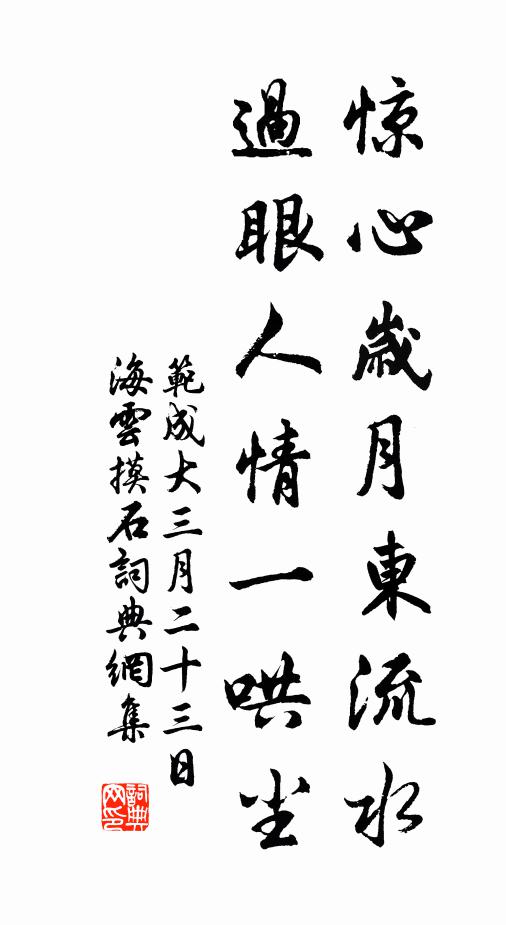 惊心歲月東流水
過眼人情一哄尘
範成大三月二十三日
海雲摸石詞典網集
詞典
网印